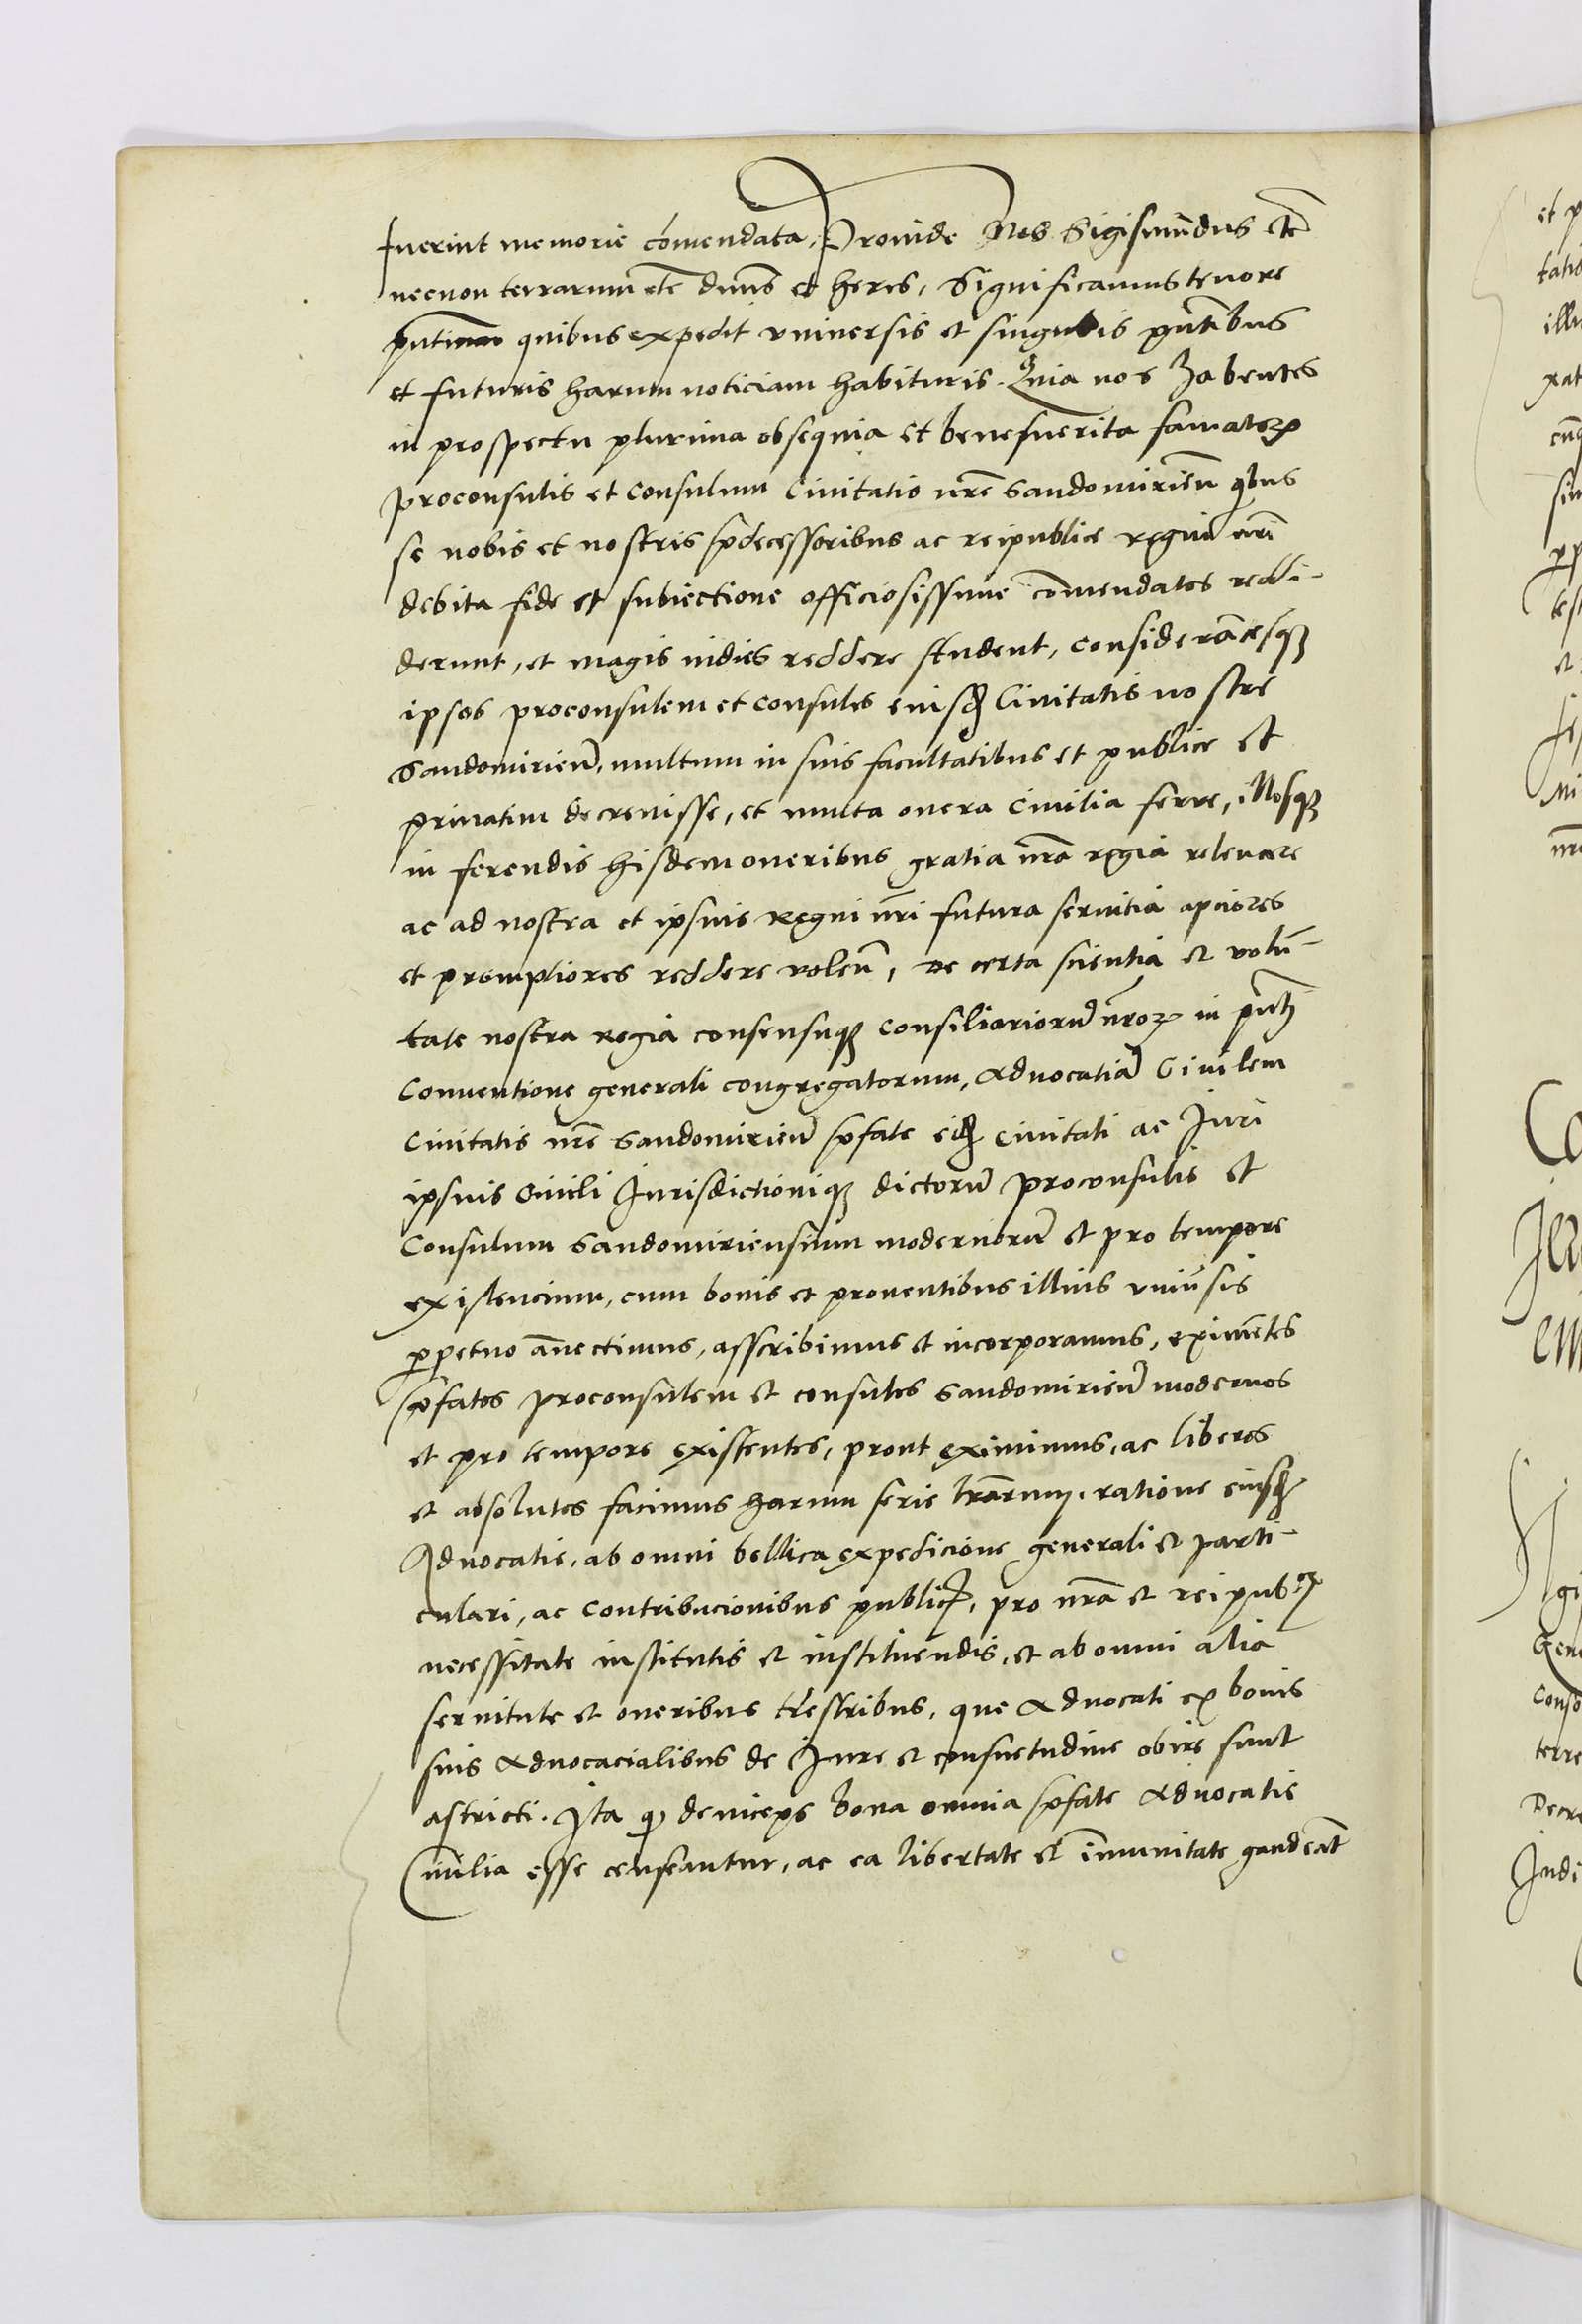 fuerint memorie com̄endata, Proinde Nos Sigismundus etc̄
necnon terrarum etc̄ dnūs et heres, Significamus tenore
pn̄tium quibus expedit vniuersis et singulis pn̄tibus
et futuris harum noticiam habituris. Quia nos habentes
in prospectu plurima obsequia et benemerita famatoꝝ
proconsulis et Consulum Ciuitatis nrē Sandomirien̄ qͥbus
se nobis et nostris p̄decessoribus ac reipublice regni nrī
debita fide et subiectione officiosissime com̄endatos reddi-
derunt, et magis indies reddere student, Considerantesqꝫ
ipsos proconsulem et Consules eiusd̄ Ciuitatis nostre
Sandomirien̄, multum in suis facultatibus et publice et
priuatim decreuisse, et multa onera Ciuilia ferre, illosqꝫ
in ferendis hisdem oneribus gratia nrā regia releuare
ac ad nostra et ipsius Regni nrī futura seruitia apciores
et promptiores reddere volen̄, de certa scientia et volun̄-
tate nostra regia consensuqꝫ Consiliariorū nrōꝝ in pn̄ti
Conuentione generali congregatorum, Aduocatiā Ciuilem
Ciuitatis nrē Sandomirien̄ p̄fate eid̄ Ciuitati ac Juri
ipsius Ciuili Jurisdictioniqꝫ dictorū proconsulis et
Consulum Sandomiriensium modernorū et pro tempore
existencium, cum bonis et prouentibus illius vniūsis
ꝑpetuo an̄ectimus, asscribimus et incorporamus, eximen̄tes
p̄fatos proconsulem et consules Sandomirien̄ modernos
et pro tempore existentes, prout eximimus, ac liberos
et absolutos facimus harum serie lrārum, ratione eiusd̄
Aduocatie, ab omni bellica expedicione generali et parti-
culari, ac Contribucionibus publicis, pro nrā et reipub:ce
necessitate institutis et instituendis, et ab omni alia
seruitute et oneribus tr̄estribus, que Aduocati ex bonis
suis Aduocacialibus de Jure et consuetudine obire sunt
astricti. Ita qͩ deinceps bona omnia p̄fate Aduocatie
Ciuilia esse censeantur, ac ea libertate et im̄unitate gaudeant